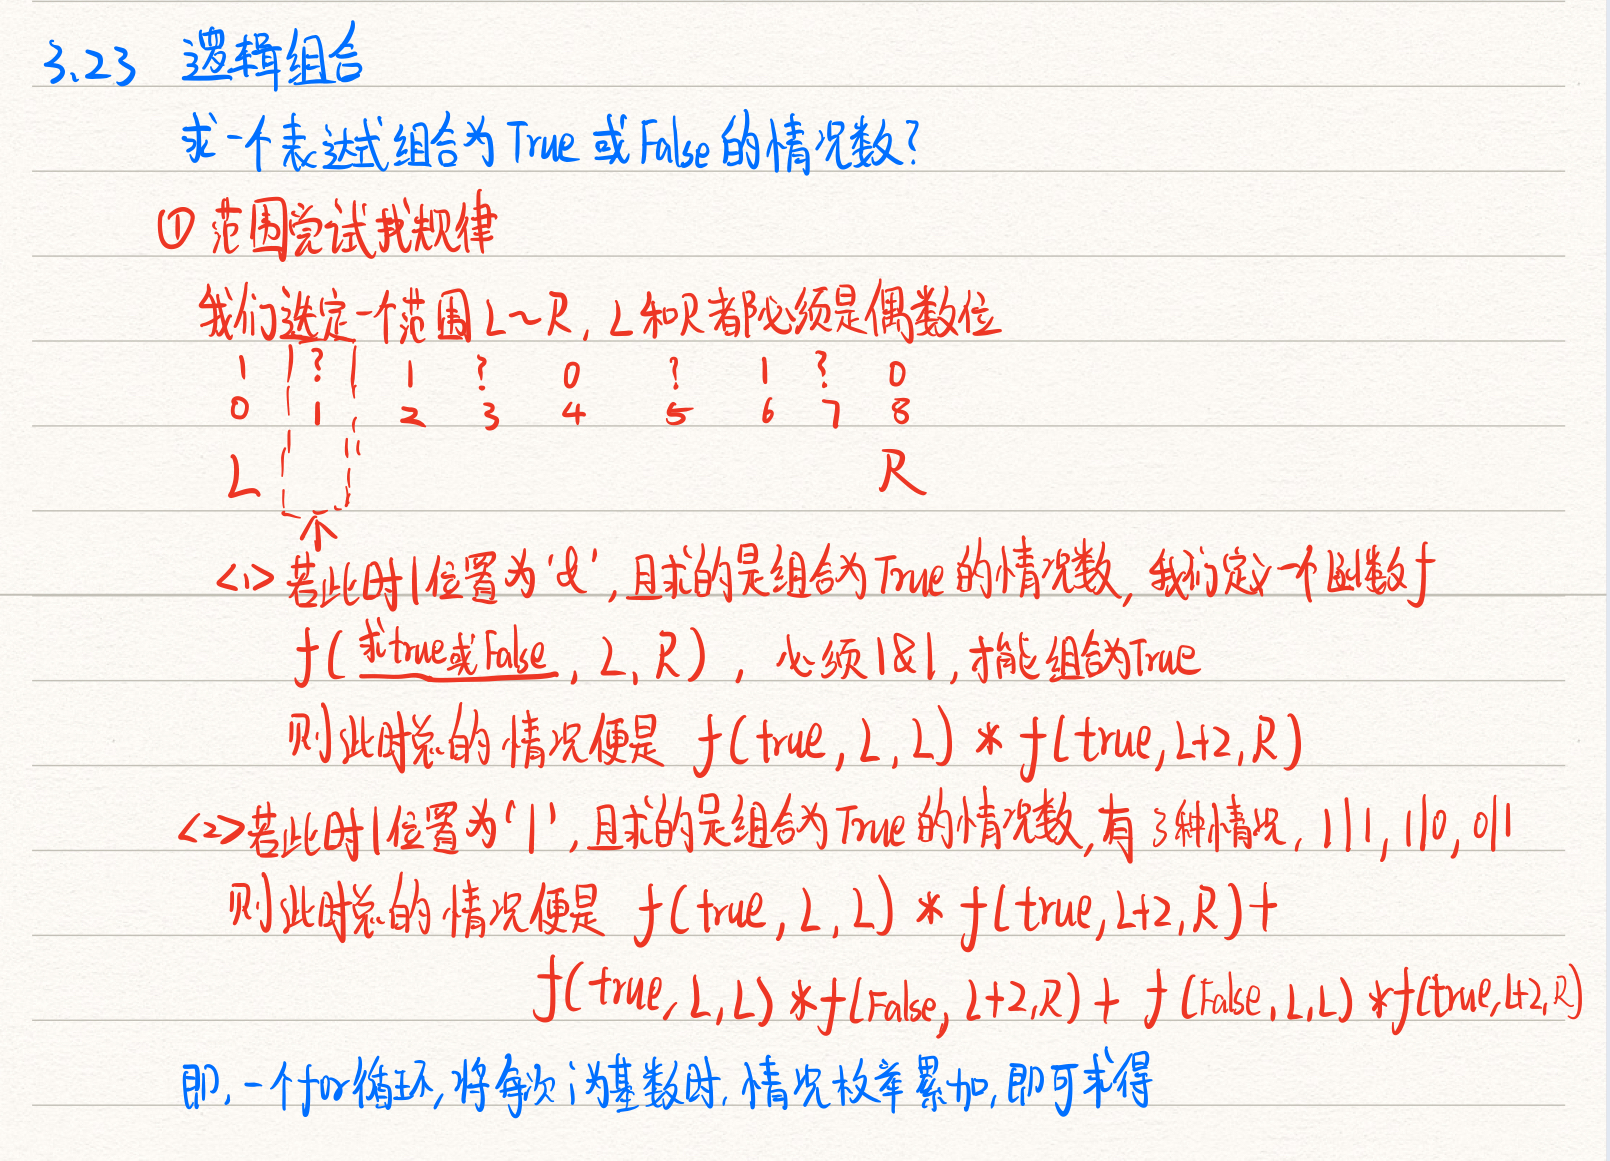 3.23 逻辑组合
求一个表达式组合为True 或False的情况数?
① 范围尝试找规律
我们选定一个范围L~R, L和R都必须是偶数位
1 ? 1 ? 0 ? 1 ? 0
0 1 2 3 4 5 6 7 8
L R
<1> 若此时1位置为'&', 且求的是组合为True的情况数, 我们定义一个函数f
f(求true或False, L, R), 必须1&1, 才能组合为True
则此时总的情况便是 f(true, L, L) * f(true, L+2, R)
<2> 若此时1位置为'|', 且求的是组合为True的情况数, 有3种情况, 1|1, 1|0, 0|1
则此时总的情况便是 f(true, L, L) * f(true, L+2, R) +
f(true, L, L) * f(False, L+2, R) + f(False, L, L) * f(true, L+2, R)
即, 一个for循环, 将每次i为基数时, 情况枚举累加, 即可求得